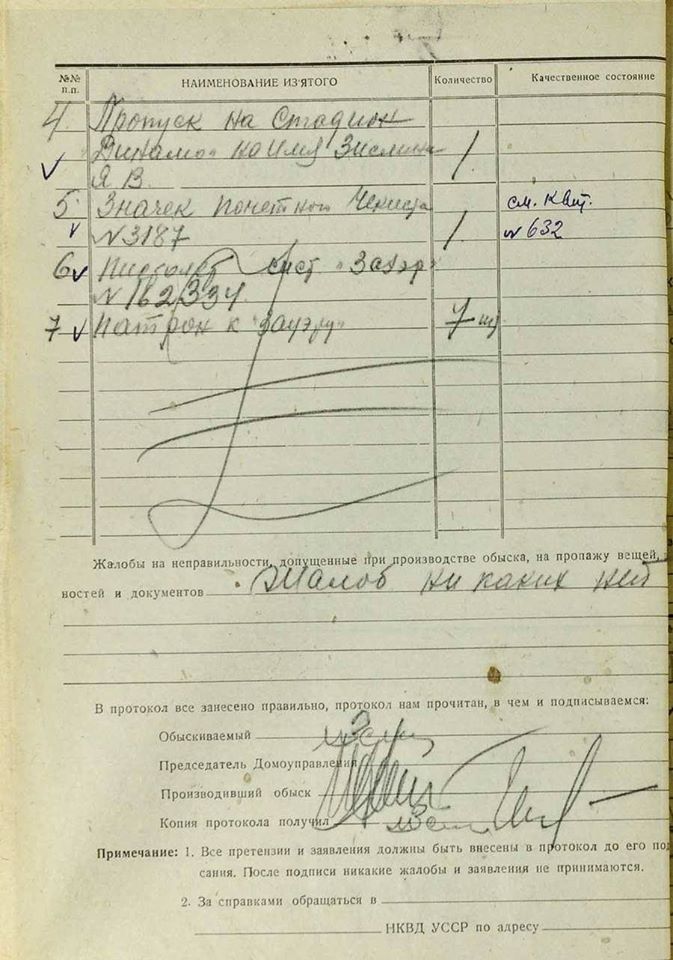 №№ п.п. НАИМЕНОВАНИЕ ИЗ'ЯТОГО Количество Качественное состояние
4 Пропуск на Стадион
Динамо" на имя Зислина 1
Я В.
5 Значек почетного Чекиста см. Квит.
№3187 1 № 632
6 Пистолет сист "Зауэр"
№ 162334
7 Патрон к "Зауэру" 7 шт
Жалобы на неправильности, допущенные при производстве обыска, на пропажу вещей,
ностей и документов Жалоб ни каких нет
В протокол все занесено правильно, протокол нам прочитан, в чем и подписываемся:
Обыскиваемый
Председатель Домоуправления
Производивший обыск
Копия протокола получил
Примечание: 1. Все претензии и заявления должны быть внесены в протокол до его под
сания. После подписи никакие жалобы и заявления не принимаются.
2. За справками обращаться в
НКВД УССР по адресу